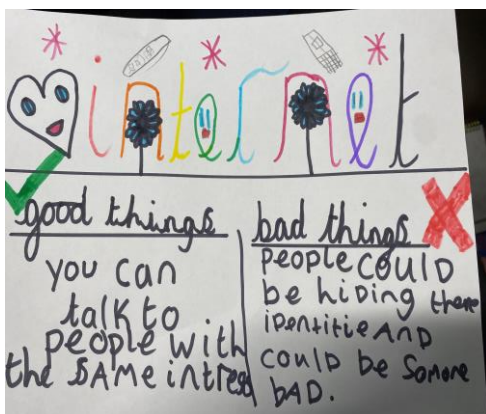 internet
good things
you can
talk to
people with
the SAME intrest
bad things
people could
be hiding there
identitie AND
could be somone
bAD.